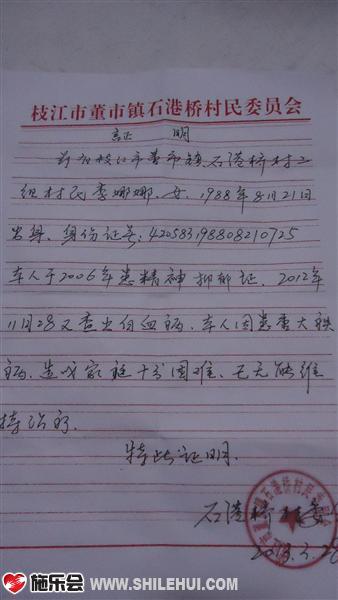 枝江市董市镇石港桥村民委员会
证 明
兹有枝江市董市镇石港桥村二
组村民李娜娜、女、1988年8月21日
出身、身份证号、420583198808210725
本人于2006年患精神抑郁证、2012年
11月28又查出白血病、本人因患重大疾
病、造成家庭十分困难、已无能维
持治疗、
特此证明.
石港桥村委
2013.3.28
施乐会 WWW.SHILEHUI.COM